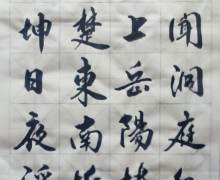 聞洞庭
上岳陽
楚東南
坤日夜